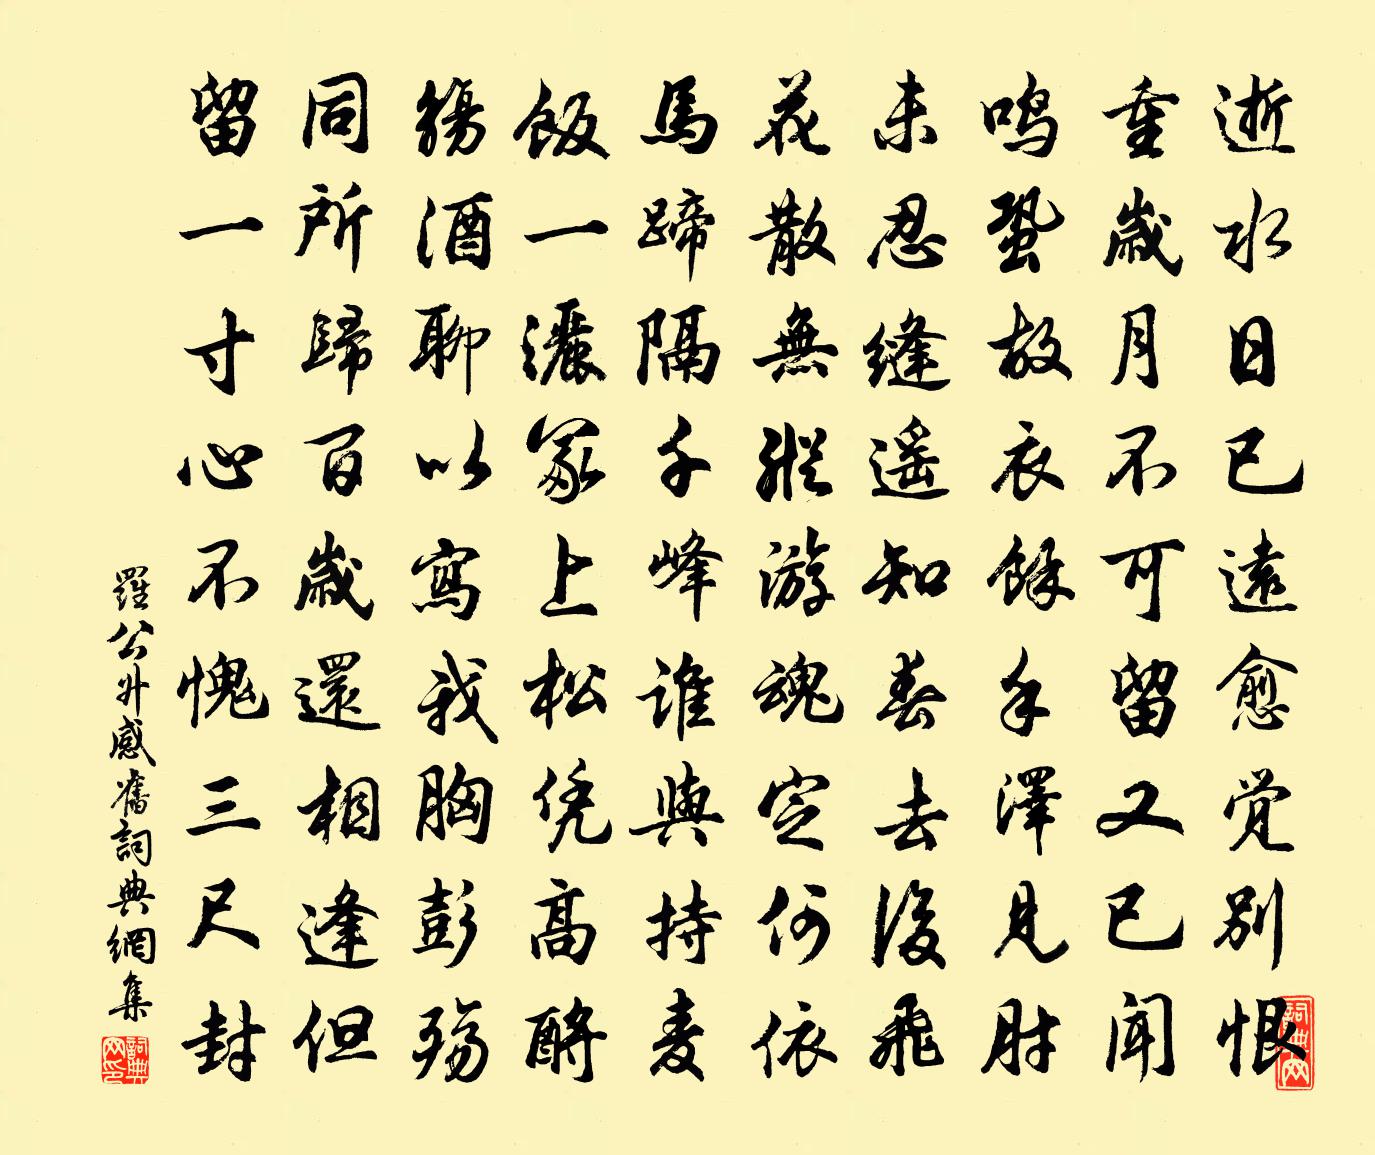 逝水日已遠愈觉别恨
重歲月不可留又已闻
鸣蛩故衣餘手澤見肘
未忍縫遥知春去後飛
花散無縱游魂定何依
馬蹄隔千峰誰與持麦
飯一灑冢上松凭高酹
觞酒聊以寫我胸彭殤
同所歸百歲還相逢但
留一寸心不愧三尺封
羅公升感舊詞典網集
詞典网
詞典网